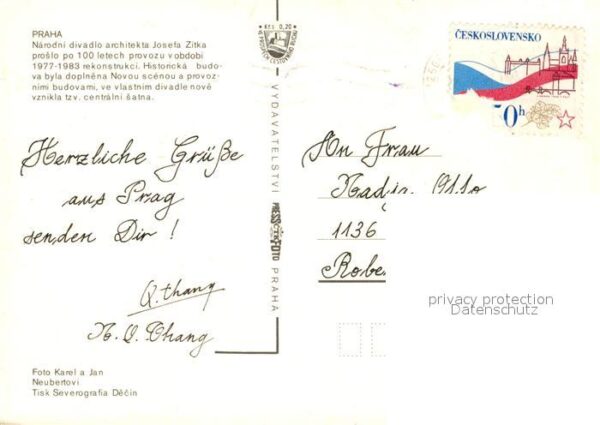 PRAHA
Národní divadlo architekta Josefa Zítka
prošlo po 100 letech provozu v období
1977-1983 rekonstrukcí. Historická budo-
va byla doplněna Novou scénou a provoz-
ními budovami, ve vlastním divadle nově
vznikla tzv. centrální šatna.
Herzliche Grüße
aus Prag
senden Dir !
Q.thang
N. Q. Thang
Foto Karel a Jan
Neubertovi
Tisk Severografia Děčín
Kčs 0,20
VYDAVATELSTVÍ
PRESSFOTO
PRAHA
ČESKOSLOVENSKO
0h
An Frau
1136
Robe
privacy protection
Datenschutz